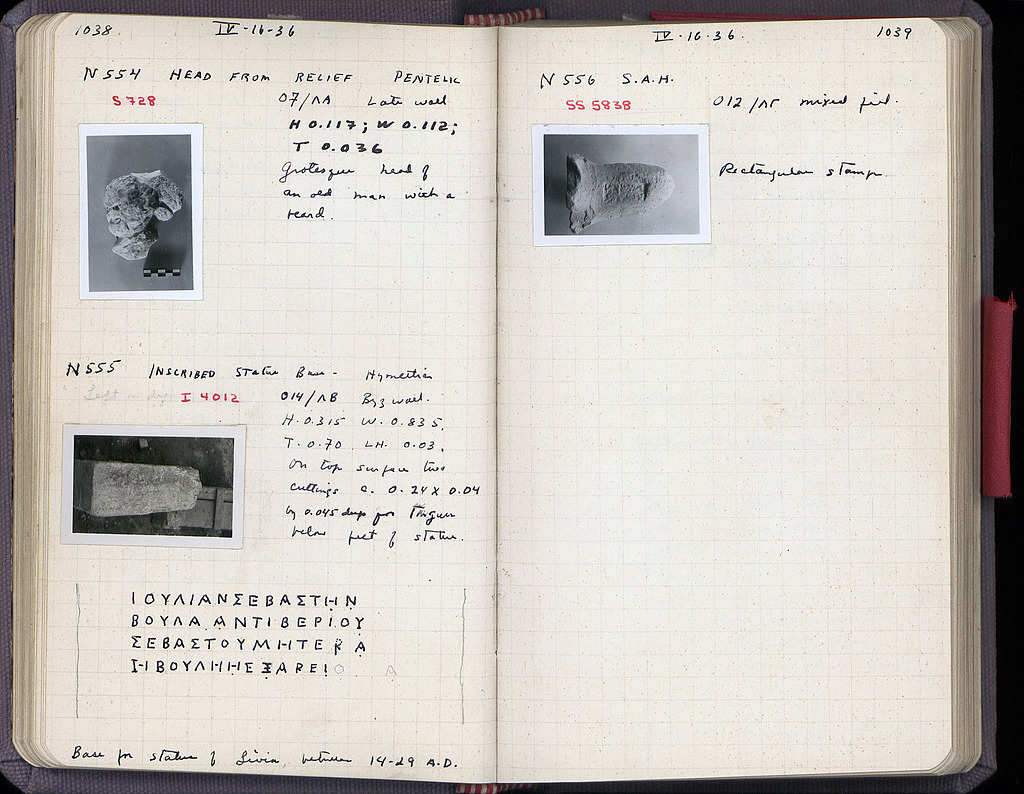 1038 IV-16-36
N 554 HEAD FROM RELIEF PENTELIC
S 728 O7/ΛA Late wall
H 0.117; W 0.112;
T 0.036
Grotesque head of
an old man with a
beard.
N 555 INSCRIBED Statue Base - Hymettian
Left in dep I 4012 O14/ΛB Byz wall.
H. 0.315 W. 0.835.
T. 0.70 LH. 0.03.
On top surface two
cuttings c. 0.24 x 0.04
by 0.045 deep for tongues
below feet of statue.
ΙΟΥΛΙΑΝΣΕΒΑΣΤΗΝ
ΒΟΥΛΑΑΝΤΙΒΕΡΙΟΥ
ΣΕΒΑΣΤΟΥΜΗΤΕΡΑ
ΗΒΟΥΛΗΗΕΞΑΡΕΙΟ Α
Base for statue of Livia, between 14-29 A.D.
IV-16-36. 1039
N 556 S.A.H.
SS 5838 O12/ΛΓ mixed fill.
Rectangular stamp